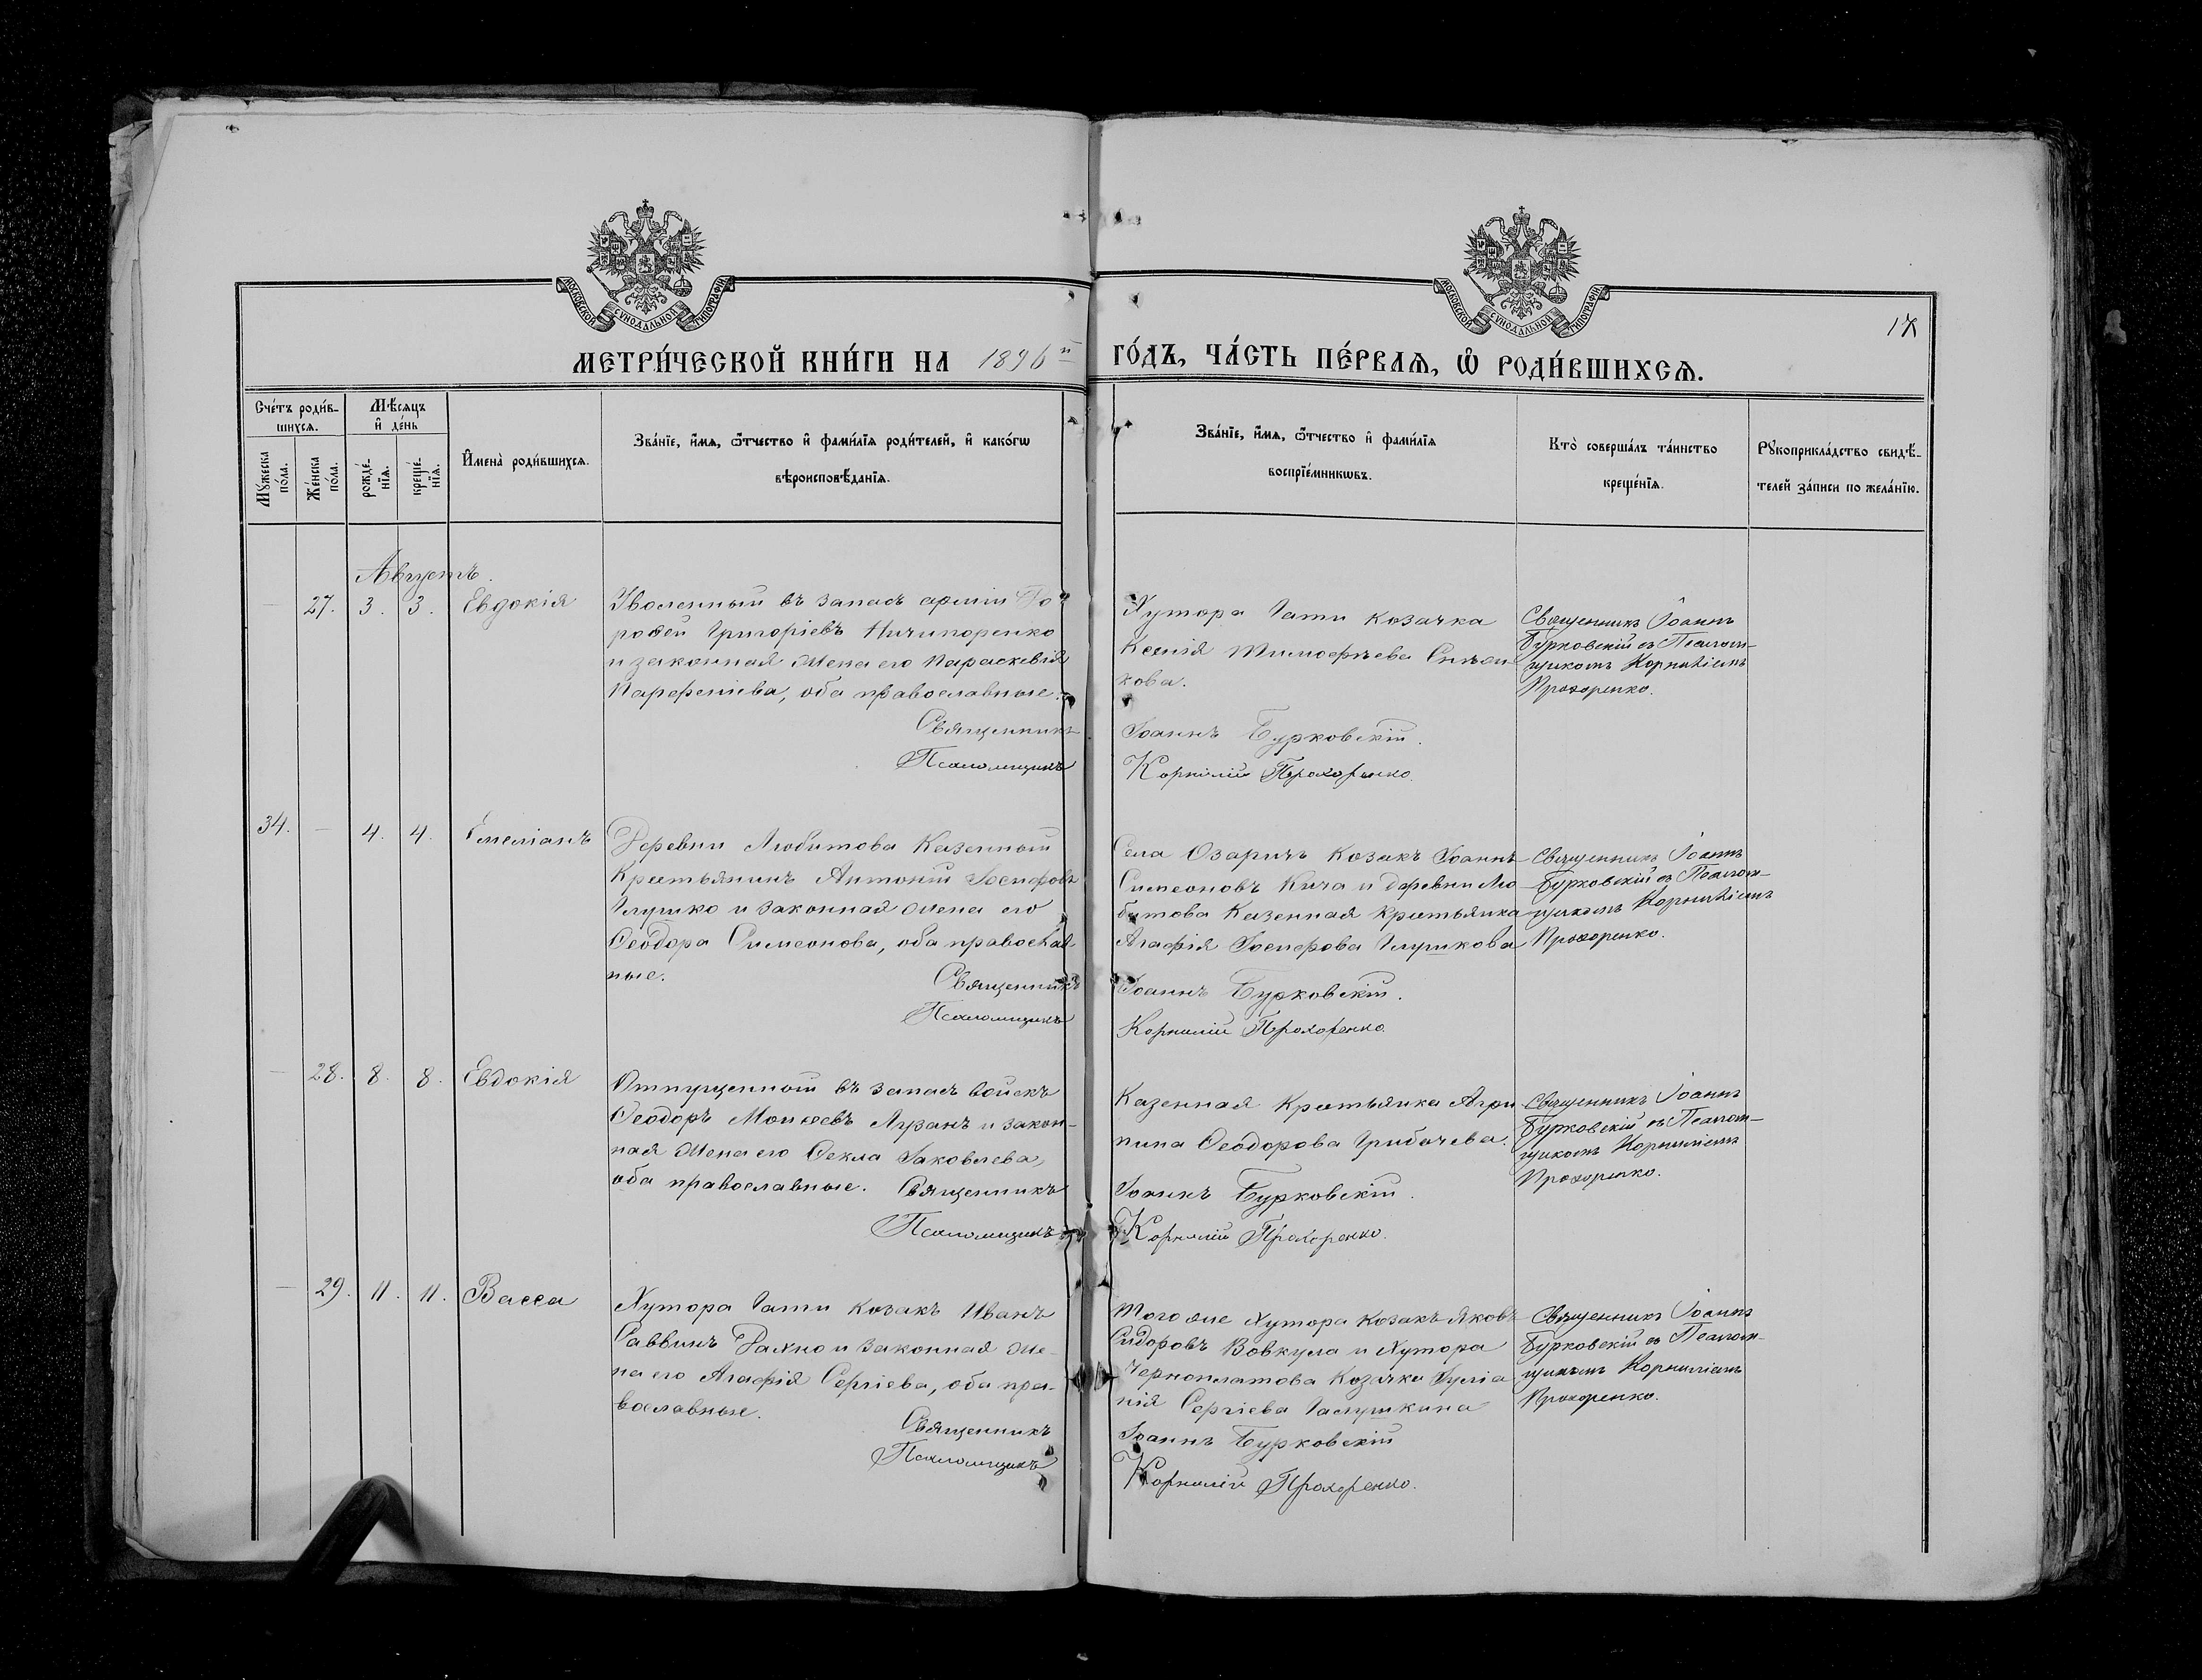 МОСКОВСКОЙ СУНОДАЛЬНОЙ ТИПОГРАФІИ
МОСКОВСКОЙ СУНОДАЛЬНОЙ ТИПОГРАФІИ
17
МЕТРИ́ЧЕСКОЙ КНИ́ГИ НА 1896й ГО́ДЪ, ЧА́СТЬ ПЕ́РВАѦ, Ѡ҆ РОДИ́ВШИХСѦ.
Сче́тъ роди́в-
шихсѧ.
Мꙋ́жеска по́ла.
Же́нска по́ла.
Мѣ́сѧцъ
и҆ де́нь
рожде́-
нїѧ.
креще́-
нїѧ.
И҆мена̀ роди́вшихсѧ.
Зва́нїе, и҆́мѧ, ѻ҆́тчество и҆ фами́лїѧ роди́телей, и҆ како́гѡ
вѣроисповѣ́данїѧ.
Зва́нїе, и҆́мѧ, ѻ҆́тчество и҆ фами́лїѧ
воспрїе́мникѡвъ.
Кто̀ соверша́лъ та́инство
креще́нїѧ.
Рꙋкоприкла́дство свидѣ́-
телей за́писи по жела́нїю.
Августъ.
— 27. 3. 3. Евдокія
Уволенный въ запасъ арміи До-
рофей Григоріевъ Ничипоренко
и законная жена его Параскевія
Парфеніева, оба православные.
Священникъ
Псаломщикъ
Хутора Гати козачка
Ксенія Тимофѣева
кова.
Іоаннъ Бурковскій.
Корнилій Прохоренко.
Священникъ Іоаннъ
Бурковскій съ Псалом-
щикомъ Корниліемъ
Прохоренко.
34. — 4. 4. Емеліанъ
Деревни Любитова Казенный
Крестьянинъ Антоній Іосифовъ
Глушко и законная жена его
Ѳеодора Симеонова, оба православ-
ные.
Священникъ
Псаломщикъ
Села Озаричъ козакъ Іоаннъ
Симеоновъ Кича и деревни Лю-
битова Казенная крестьянка
Агафія Іосифова Глушкова
Іоаннъ Бурковскій.
Корнилій Прохоренко.
Священникъ Іоаннъ
Бурковскій съ Псалом-
щикомъ Корниліемъ
Прохоренко.
— 28. 8. 8. Евдокія
Отпущенный въ запасъ войскъ
Ѳеодоръ Моисеевъ Лузанъ и закон-
ная жена его Ѳекла Іаковлева,
оба православные. Священникъ
Псаломщикъ
Казенная Крестьянка Агри
пина Ѳеодорова Грибачева.
Іоаннъ Бурковскій.
Корнилій Прохоренко.
Священникъ Іоаннъ
Бурковскій съ Псалом-
щикомъ Корниліемъ
Прохоренко.
— 29. 11. 11. Васса
Хутора Гати козакъ Иванъ
Саввинъ Дахно и законная же-
на его Агафія Сергіева, оба пра-
вославные.
Священникъ
Псаломщикъ
Того же Хутора козакъ Яковъ
Сидоровъ Вовкула и Хутора
Черноплатова Козачка Іуліа
нія Сергіева Галушкина
Іоаннъ Бурковскій
Корнилій Прохоренко.
Священникъ Іоаннъ
Бурковскій съ Псалом-
щикомъ Корниліемъ
Прохоренко.